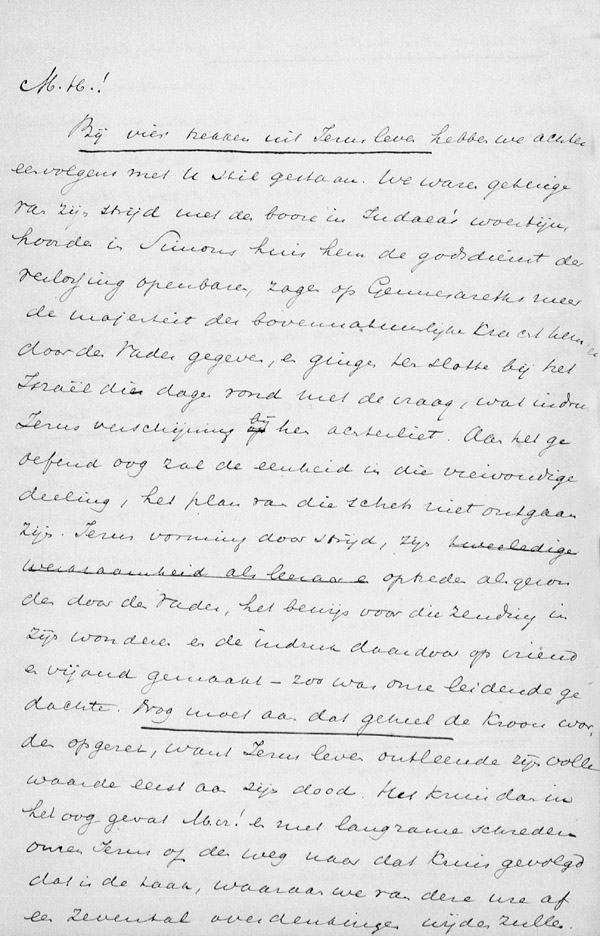 M. H.!
Bij vier trekken uit Jezus leven hebben we achter
eenvolgens met U stil gestaan. We waren getuige
van zijn strijd met den booze in Judaea's woestijn,
hoorden in Simons huis hem de godsdienst der
verlossing openbaren, zagen op Gennesareths meer
de majesteit der bovennatuurlijke kracht hem
door den Vader gegeven, en gingen ten slotte bij het
Israël dier dagen rond met de vraag, wat indruk
Jezus verschijning op bij hen achterliet. Aan het ge
oefend oog zal de eenheid in die viervoudige
deeling, het plan van die schets niet ontgaan
zijn. Jezus vorming door strijd, zijn tweeledige
werkzaamheid als leeraar en optreden als gezon
den door den Vader, het bewijs voor die zending in
zijn wonderen en de indruk daardoor op vriend
en vijand gemaakt – zoo was onze leidende ge
dachte. Nog moet aan dat geheel de Kroon wor,
den opgezet, want Jezus leven ontleende zijn volle
waarde eerst aan zijn dood. Het Kruis dan in
het oog gevat M.H.! en met langzame schreden
onzen Jezus op den weg naar dat Kruis gevolgd
dat is de taak, waaraan we van deze ure af
een zevental overdenkingen wijden zullen.